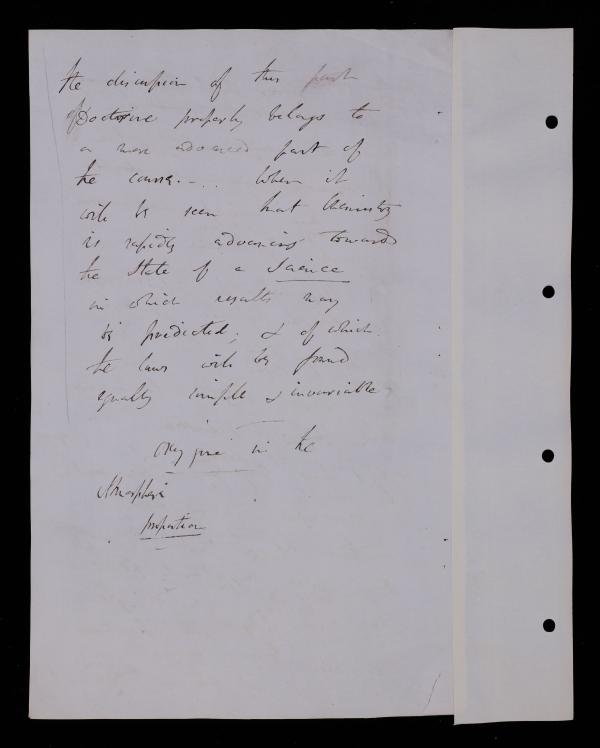 the discussion of this part
of Doctrine properly belongs to
a more advanced part of
the course. - .. When it
will be seen that Chemistry
is rapidly advancing towards
the State of a Science
in which results may
be predicted; & of which
the laws will be found
equally simple & invariable
Oxygene in the
Atmosphere
proportion